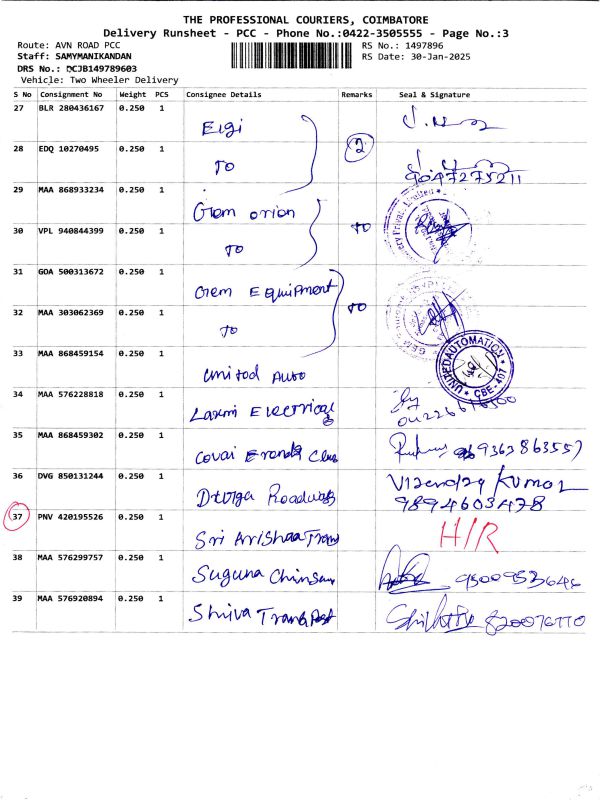 THE PROFESSIONAL COURIERS, COIMBATORE
Delivery Runsheet - PCC - Phone No.:0422-3505555 - Page No.:3
Route: AVN ROAD PCC RS No.: 1497896
Staff: SAMYMANIKANDAN RS Date: 30-Jan-2025
DRS No.: DCJB149789603
Vehicle: Two Wheeler Delivery
S No Consignment No Weight PCS Consignee Details Remarks Seal & Signature
27 BLR 280436167 0.250 1 Elgi
28 EDQ 10270495 0.250 1 TO 2 9047275211
29 MAA 868933234 0.250 1 Gem orion
30 VPL 940844399 0.250 1 TO TO
31 GOA 500313672 0.250 1 Gem Equipment TO
32 MAA 303062369 0.250 1 TO
33 MAA 868459154 0.250 1 United Auto UNITED AUTOMATION CBE-407
34 MAA 576228818 0.250 1 Laxmi Electrical
35 MAA 868459302 0.250 1 Covai 9363863557
36 DVG 850131244 0.250 1 Durga Roadways Vijendra Kumar
9894603478
37 PNV 420195526 0.250 1 Sri Trans H/R
38 MAA 576299757 0.250 1 Suguna
39 MAA 576920894 0.250 1 Shiva Transport